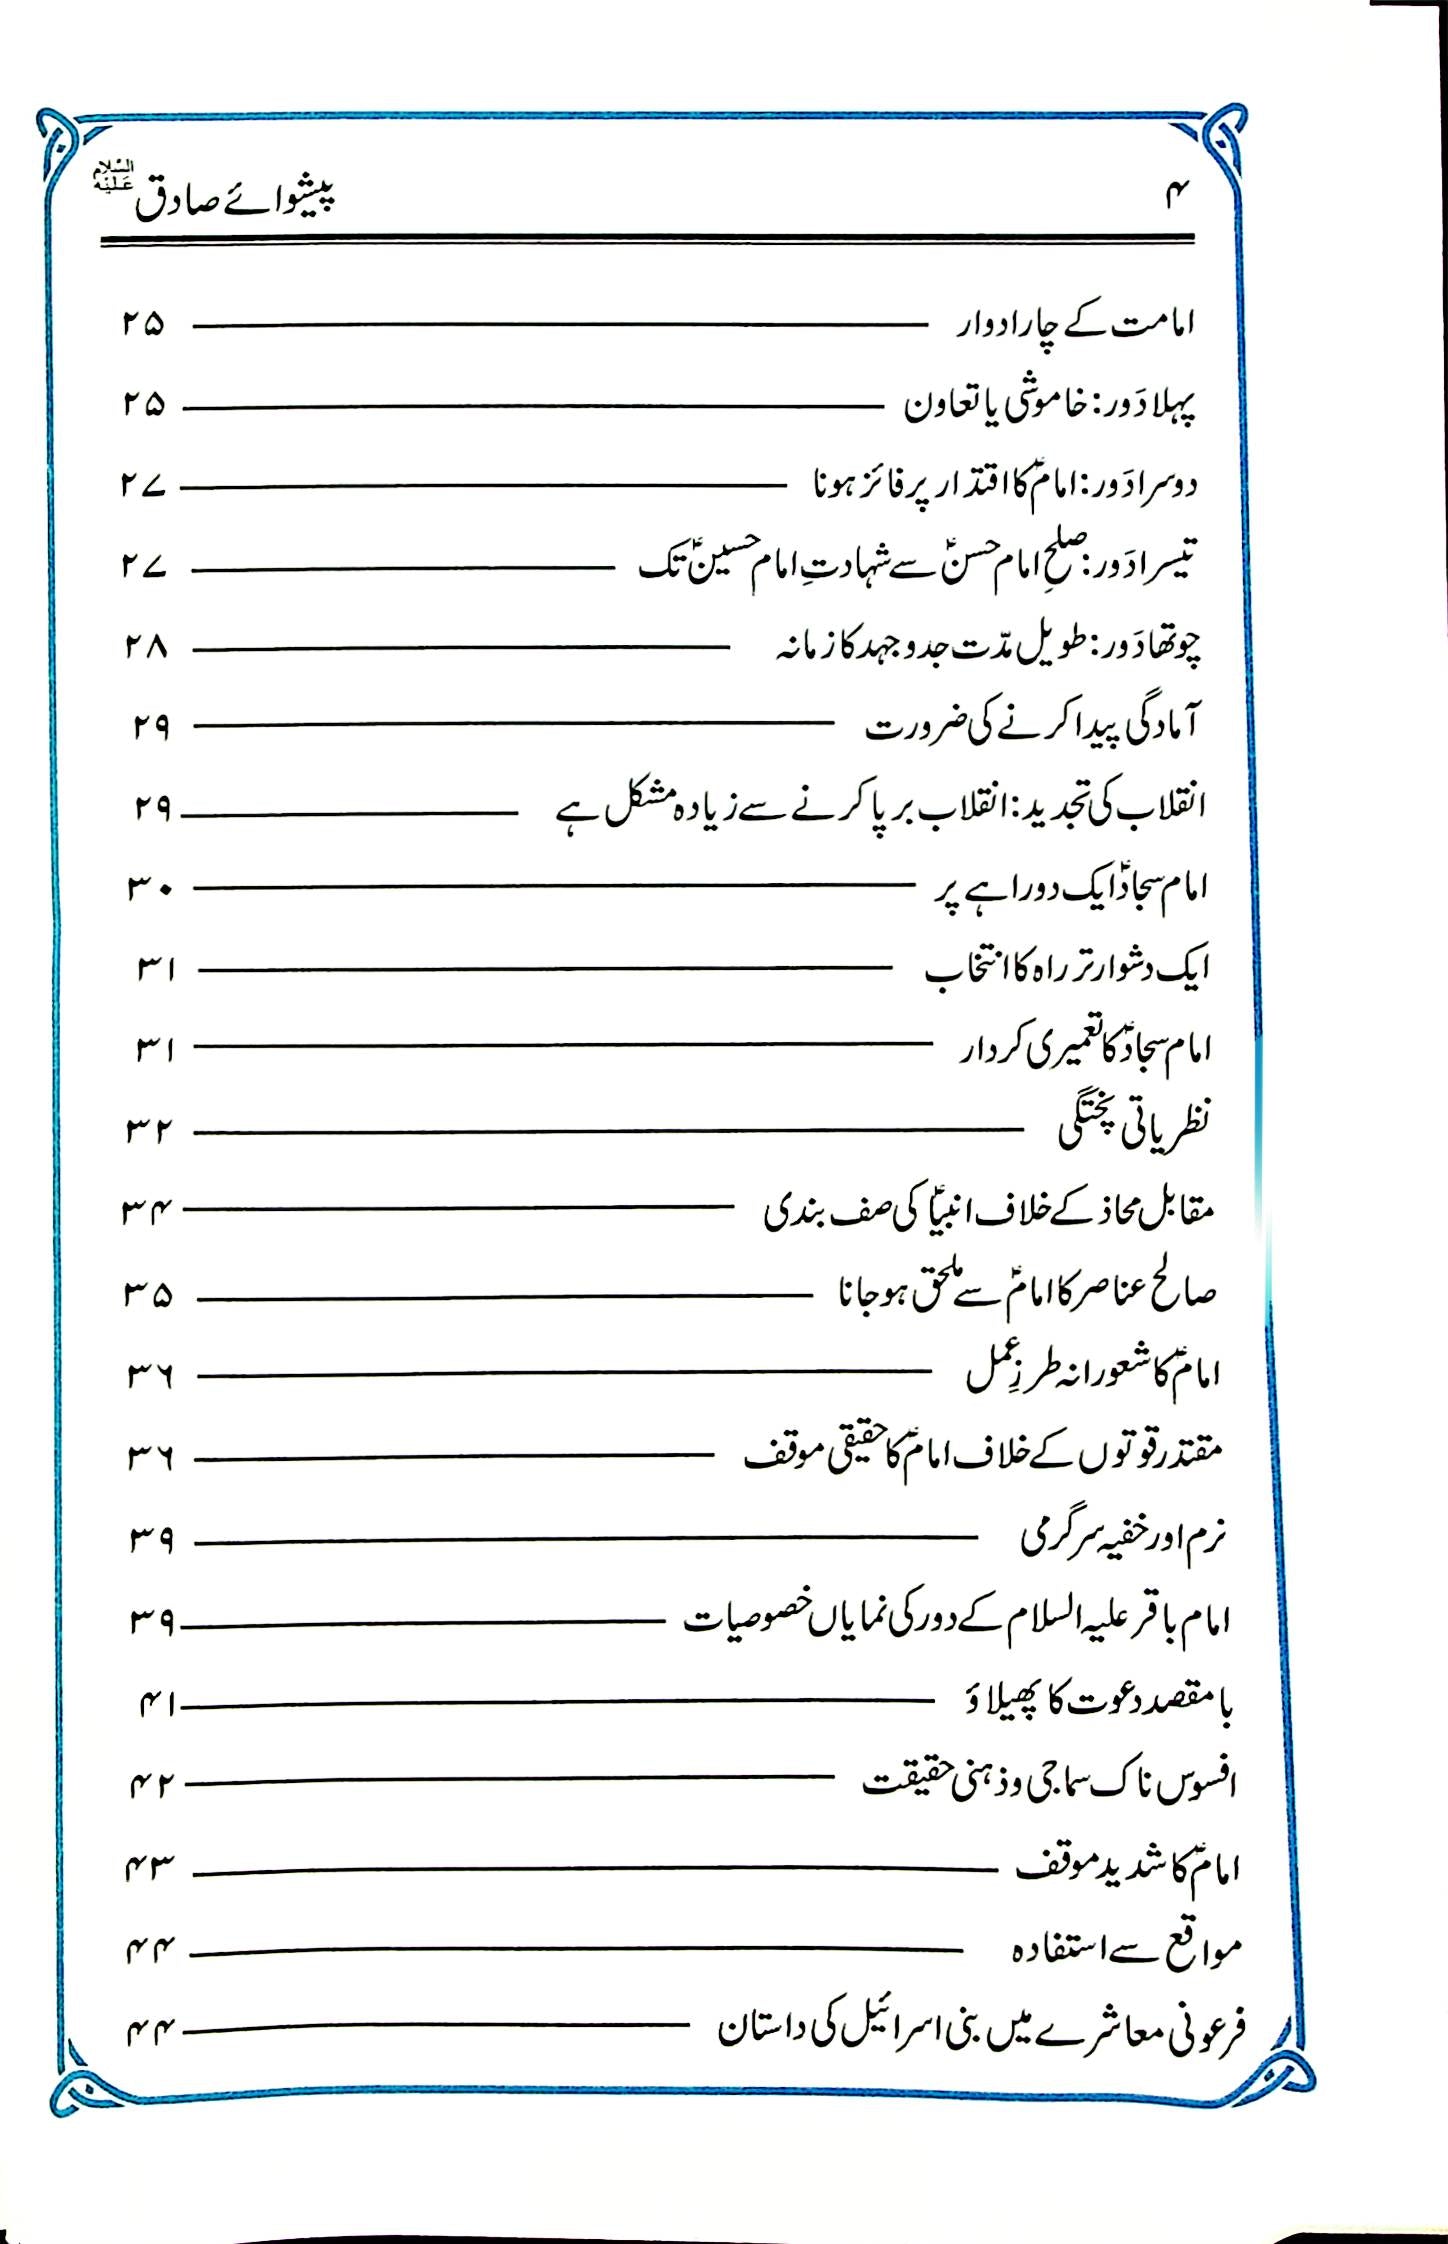 ۴ پیشوائے صادق علیہ السلام
امامت کے چار ادوار ۲۵
پہلا دَور: خاموشی یا تعاون ۲۵
دوسرا دَور: امامؑ کا اقتدار پر فائز ہونا ۲۷
تیسرا دَور: صلحِ امام حسنؑ سے شہادتِ امام حسینؑ تک ۲۷
چوتھا دَور: طویل مدّت جدوجہد کا زمانہ ۲۸
آمادگی پیدا کرنے کی ضرورت ۲۹
انقلاب کی تجدید: انقلاب برپا کرنے سے زیادہ مشکل ہے ۲۹
امام سجادؑ ایک دوراہے پر ۳۰
ایک دشوار تر راہ کا انتخاب ۳۱
امام سجادؑ کا تعمیری کردار ۳۱
نظریاتی پختگی ۳۲
مقابل محاذ کے خلاف انبیاؑ کی صف بندی ۳۴
صالح عناصر کا امامؑ سے ملحق ہو جانا ۳۵
امامؑ کا شعورانہ طرزِ عمل ۳۶
مقتدر قوتوں کے خلاف امامؑ کا حقیقی موقف ۳۶
نرم اور خفیہ سرگرمی ۳۹
امام باقر علیہ السلام کے دور کی نمایاں خصوصیات ۳۹
بامقصد دعوت کا پھیلاؤ ۴۱
افسوس ناک سماجی و ذہنی حقیقت ۴۲
امامؑ کا شدید موقف ۴۳
مواقع سے استفادہ ۴۴
فرعونی معاشرے میں بنی اسرائیل کی داستان ۴۴